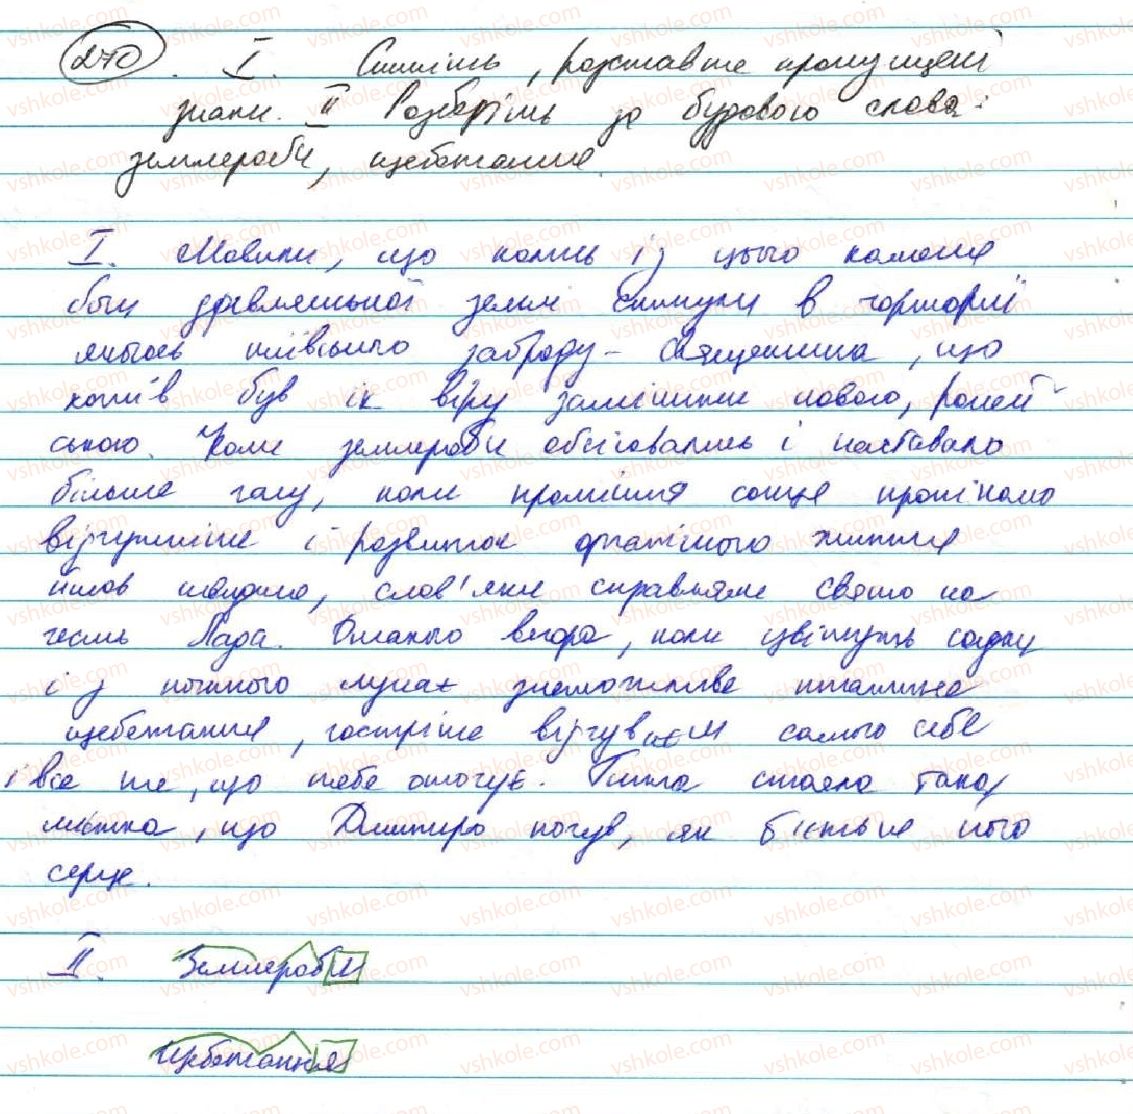 270. I. Спишіть, розставте пропущені
знаки. II Розберіть за будовою слова:
землероби, щебетання.
I. Мовили, що колись із цього каменя
боги древлянської землі скинули в чорторий
якогось київського заброду-священика, що
хотів був їх віру замінити новою, ромей-
ською. Коли землероби обсівались і наставало
більше часу, коли проміння сонця проникало
відчутніше і розвиток органічного життя
йшов швидше, слов'яни справляли свято на
честь Лада. Отакого вечора, коли цвітуть садки
і з кожного лунає знеможливе пташине
щебетання, гостріше відчуваєш самого себе
і все те, що тебе оточує. Тиша стояла така
м'яка, що Дмитро почув, як б'ється його
серце.
II. Землероби
Щебетання
vshkole.com